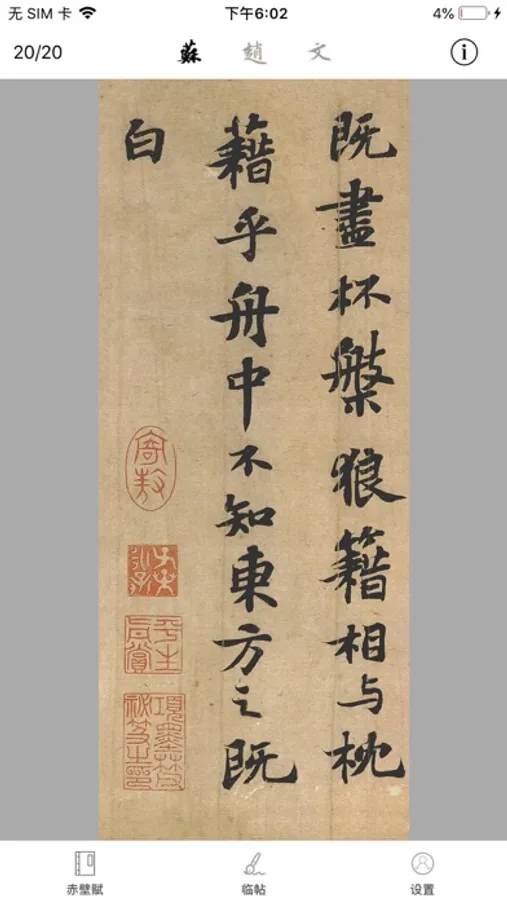 无 SIM 卡 下午6:02 4%
20/20 蘇 趙 文
既盡杯槃狼籍相与枕
藉乎舟中不知東方之既
白
赤壁赋 临帖 设置